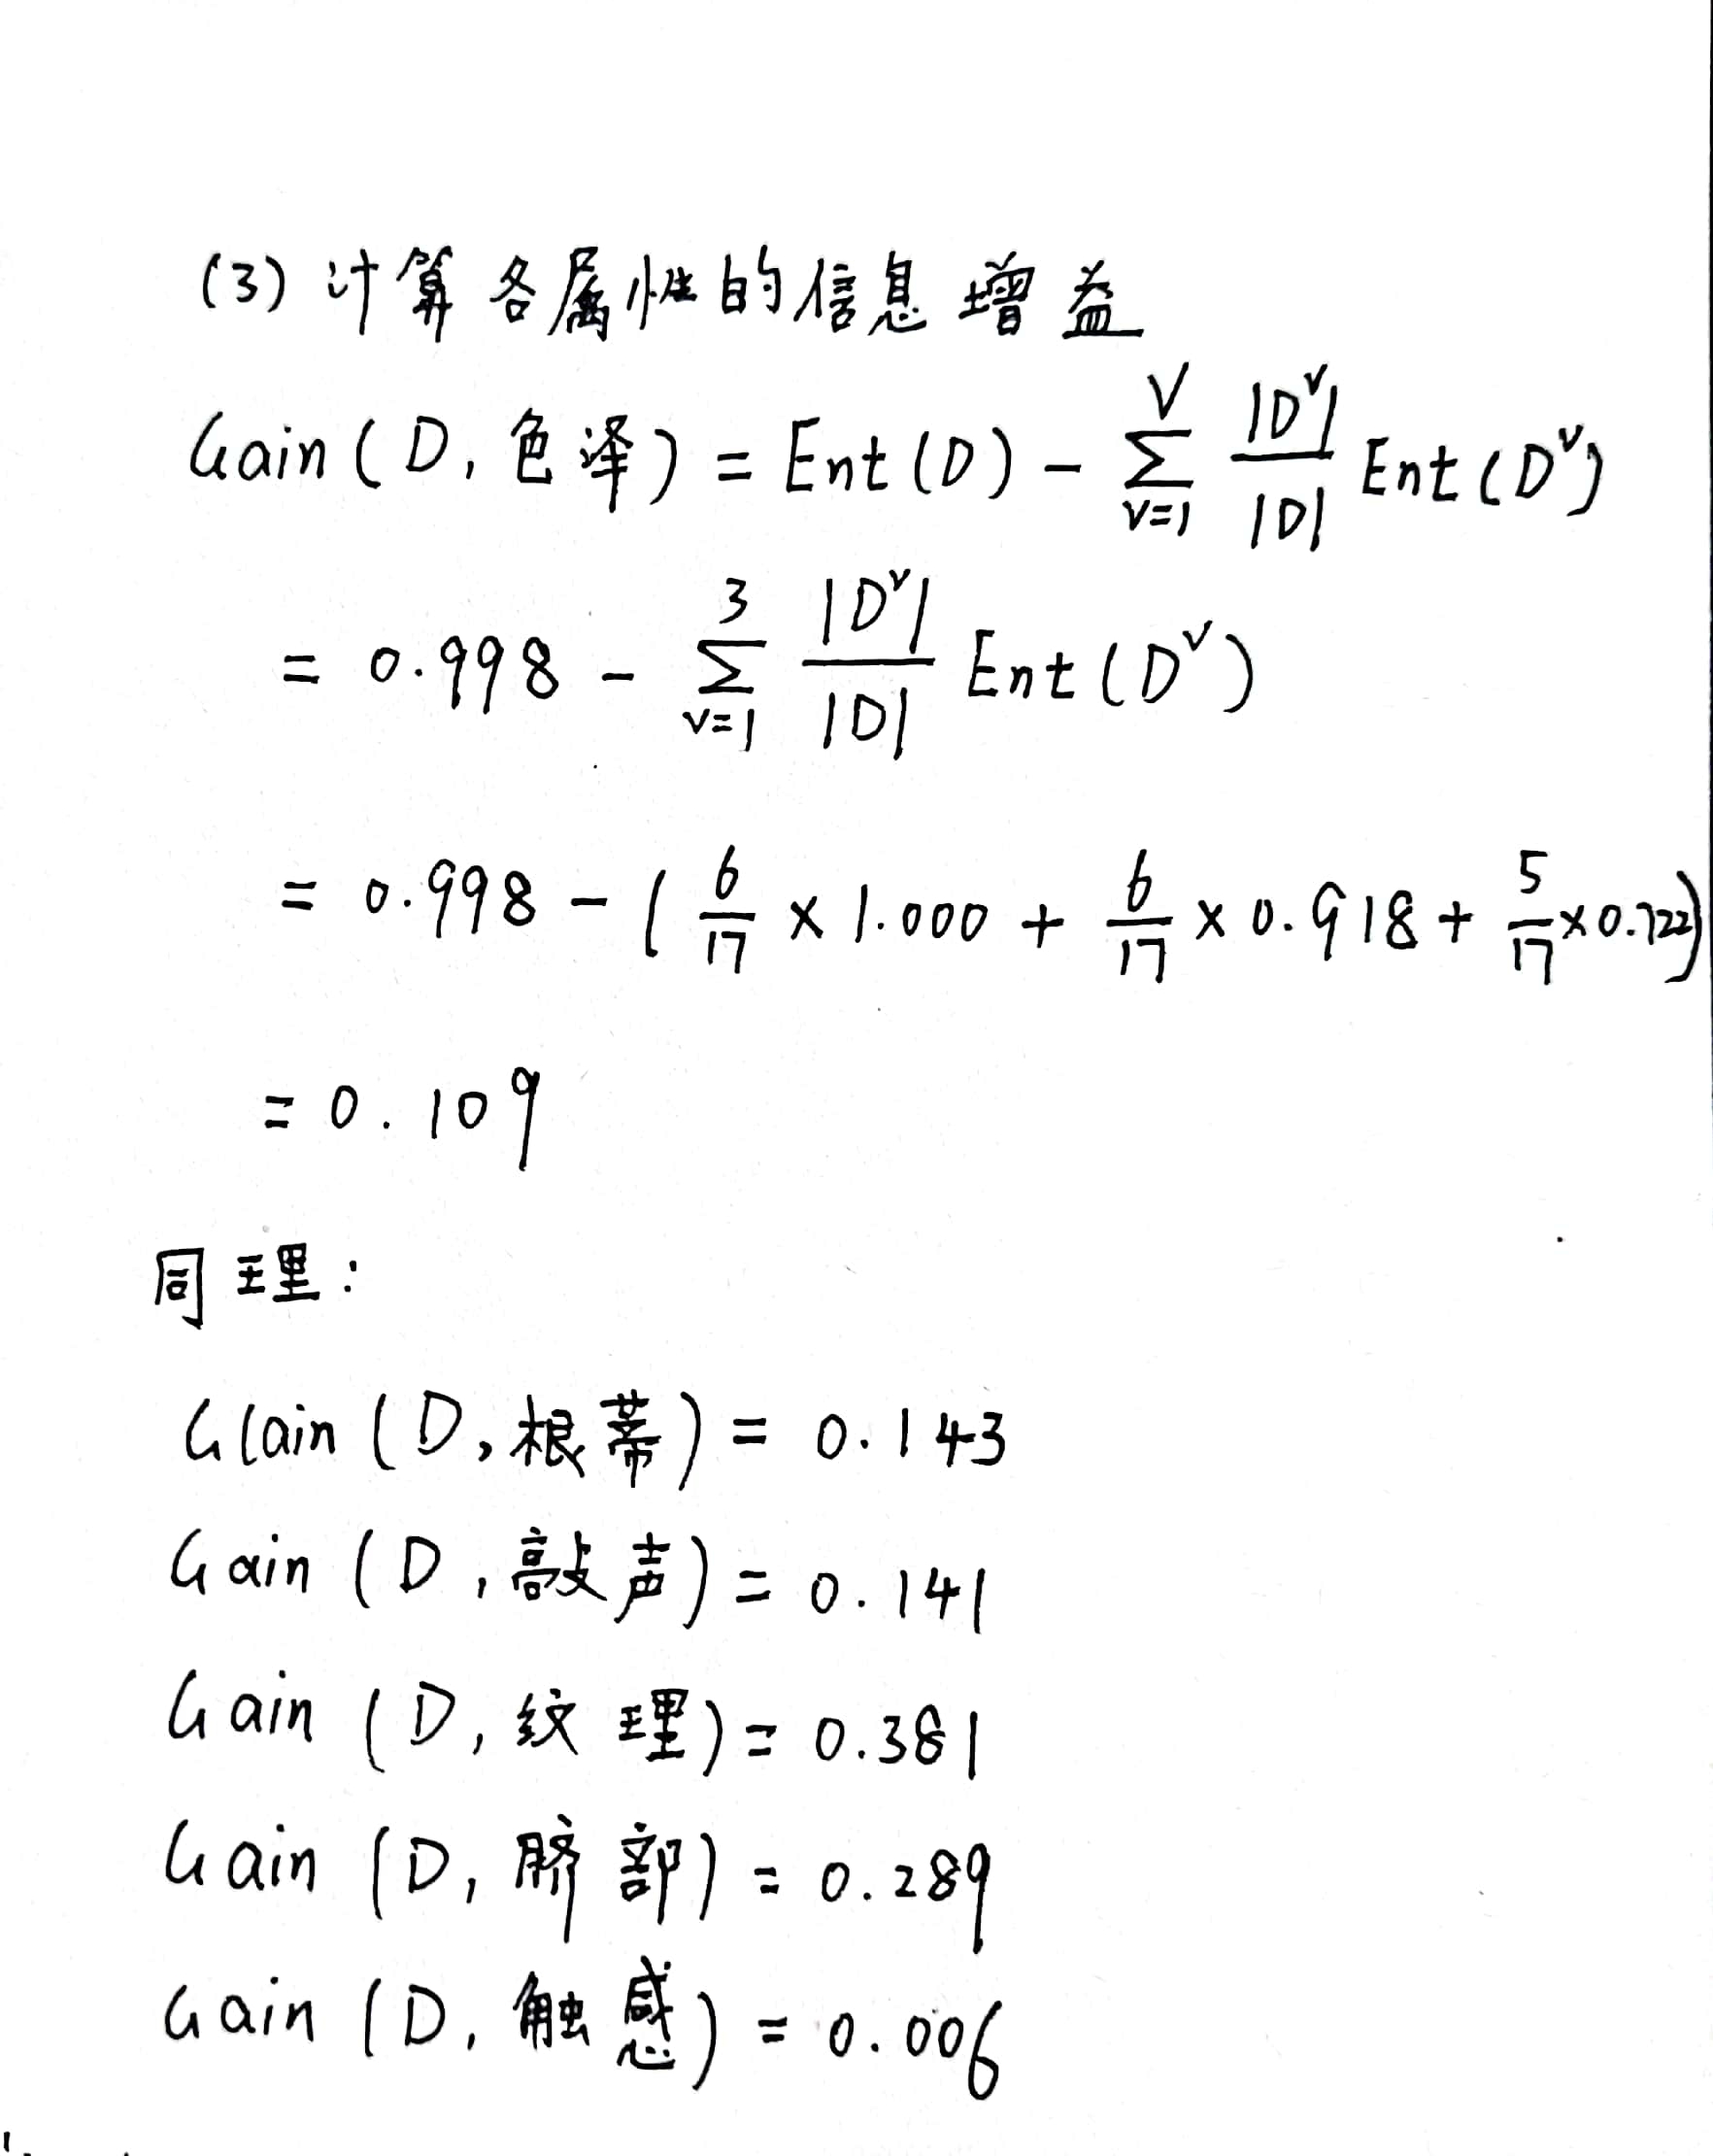 (3) 计算各属性的信息增益
Gain(D, 色泽) = Ent(D) - \sum_{v=1}^{V} \frac{|D^v|}{|D|} Ent(D^v)
= 0.998 - \sum_{v=1}^{3} \frac{|D^v|}{|D|} Ent(D^v)
= 0.998 - ( \frac{6}{17} × 1.000 + \frac{6}{17} × 0.918 + \frac{5}{17} × 0.722)
= 0.109
同理:
Gain (D, 根蒂) = 0.143
Gain (D, 敲声) = 0.141
Gain (D, 纹理) = 0.381
Gain (D, 脐部) = 0.289
Gain (D, 触感) = 0.006